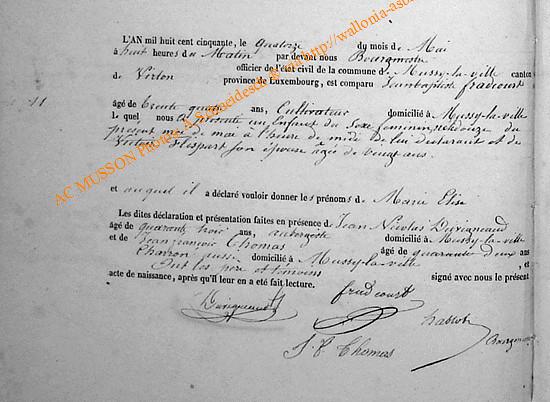 L'AN mil huit cent cinquante, le quatorze du mois de Mai
à huit heures du Matin par devant nous Bourgmestre
officier de l'état civil de la commune de Mussy-la-ville canton
de Virton province de Luxembourg, est comparu Jeanbaptiste fradcourt
11
âgé de trente quatre ans, Cultivateur domicilié à Mussy-la-ville
Le quel, nous a présenté un Enfant du Sexe feminin, né douze du
présent mois de mai à l'heure de midi de lui déclarant et de
Victoire son épouse âgée de ans.
et auquel il a déclaré vouloir donner les prénoms de Marie Elise
Les dites déclaration et présentation faites en présence de Jean Nicolas
âgé de quarante trois ans, aubergiste domicilié à Mussy-la-ville
et de Jean françois Thomas âgé de quarante deux ans
Charron aussi domicilié à Mussy-la-ville, et
Ont les père et témoins signé avec nous le présent
acte de naissance, après qu'il leur en a été fait lecture.
fradcourt
J. f. Thomas
AC MUSSON Photos A.Schneidesch & via http://wallonia-aso